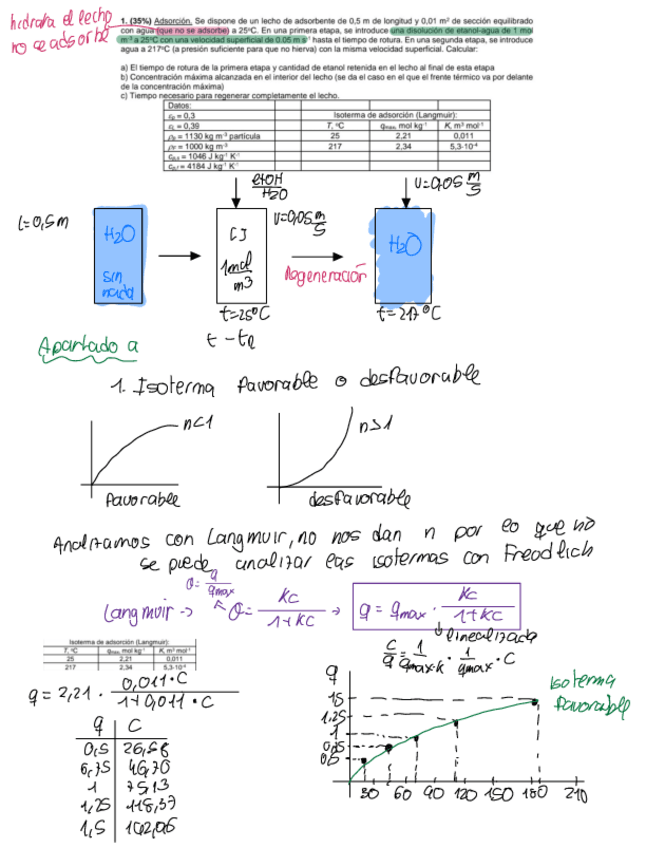 hidrata el lecho
no se adsorbe
1. (35%) Adsorción. Se dispone de un lecho de adsorbente de 0,5 m de longitud y 0,01 m² de sección equilibrado
con agua (que no se adsorbe) a 25ºC. En una primera etapa, se introduce una disolución de etanol-agua de 1 mol
m⁻³ a 25ºC con una velocidad superficial de 0.05 m s⁻¹ hasta el tiempo de rotura. En una segunda etapa, se introduce
agua a 217ºC (a presión suficiente para que no hierva) con la misma velocidad superficial. Calcular:
a) El tiempo de rotura de la primera etapa y cantidad de etanol retenida en el lecho al final de esta etapa
b) Concentración máxima alcanzada en el interior del lecho (se da el caso en el que el frente térmico va por delante
de la concentración máxima)
c) Tiempo necesario para regenerar completamente el lecho.
Datos:
= 0,3 Isoterma de adsorción (Langmuir):
= 0,39 T, ºC qmax, mol kg⁻¹ K, m³ mol⁻¹
= 1130 kg m⁻³ partícula 25 2,21 0,011
= 1000 kg m⁻³ 217 2,34 5,3·10⁻⁴
= 1046 J kg⁻¹ K⁻¹
= 4184 J kg⁻¹ K⁻¹
etOH
H2O
U=0,05 m/s
L=0,5m
H2O
sin
nada
1 mol
m3
U=0,05 m/s
Regeneración
H2O
t=25ºC
t=217ºC
Apartado a
1. Isoterma favorable o desfavorable
n<1
n>1
favorable
desfavorable
Analizamos con Langmuir, no nos dan n por lo que no
se puede analizar las isotermas con Freodlich
θ= q/qmax
Langmuir -> θ= KC/1+KC -> q = qmax · KC/1+KC
linealizada
C/q = 1/qmax·K · 1/qmax · C
Isoterma de adsorción (Langmuir):
T, ºC qmax, mol kg⁻¹ K, m³ mol⁻¹
25 2,21 0,011
217 2,34 5,3·10⁻⁴
q = 2,21 · 0,011·C/1+0,011·C
q C
0,5 26,58
1 75,13
isoterma
favorable
q
1,25
1
0,5
30 60 90 120 150 180 210